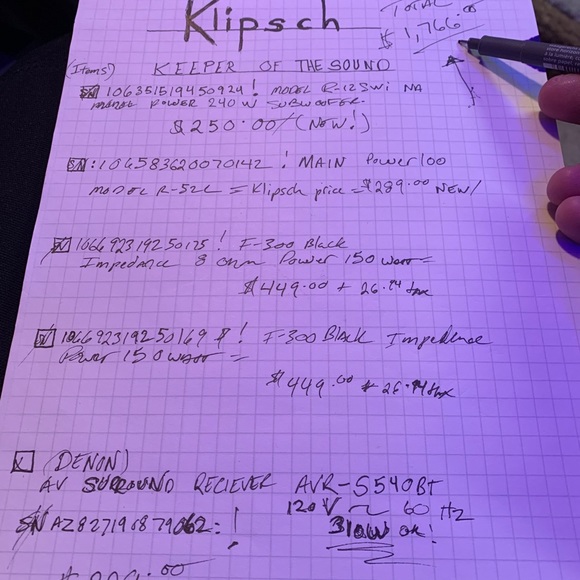 Klipsch
TOTAL
$ 1,766.00
(Items) KEEPER OF THE SOUND
SN 106351519450924! MODEL R-12SWi NA
MODEL POWER 240 W SUBWOOFER.
$250.00/(NEW!)
S/N: 106583620070142! MAIN Power 100
MODEL R-52C = Klipsch price = $289.00 NEW/
106692319250175! F-300 Black
Impedance 8 ohm Power 150 watt =
$449.00 + 26.94 tax
106692319250169 ! F-300 Black Impedence
Power 150 watt =
$449.00 + 26.94 tax
(DENON)
AV SURROUND RECIEVER AVR-S540BT
120 V ~ 60 Hz
SN AZ827190879062=!
310W
.00